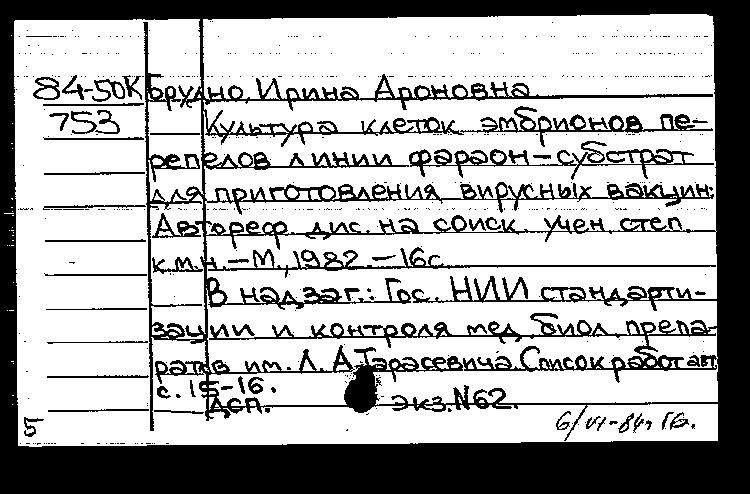 84-50К Брудно, Ирина Ароновна.
753 Культура клеток эмбрионов пе-
репелов линии фараон-субстрат
для приготовления вирусных вакцин:
Автореф. дис. на соиск. учен. степ.
к.м.н. - М., 1982. - 16с.
В надзаг.: Гос. НИИ стандарти-
зации и контроля мед. биол. препа-
ратов им. Л. А Тарасевича. Список работ авт.
с. 15-16.
ДСП. экз. N62.
5 6/VI-84г